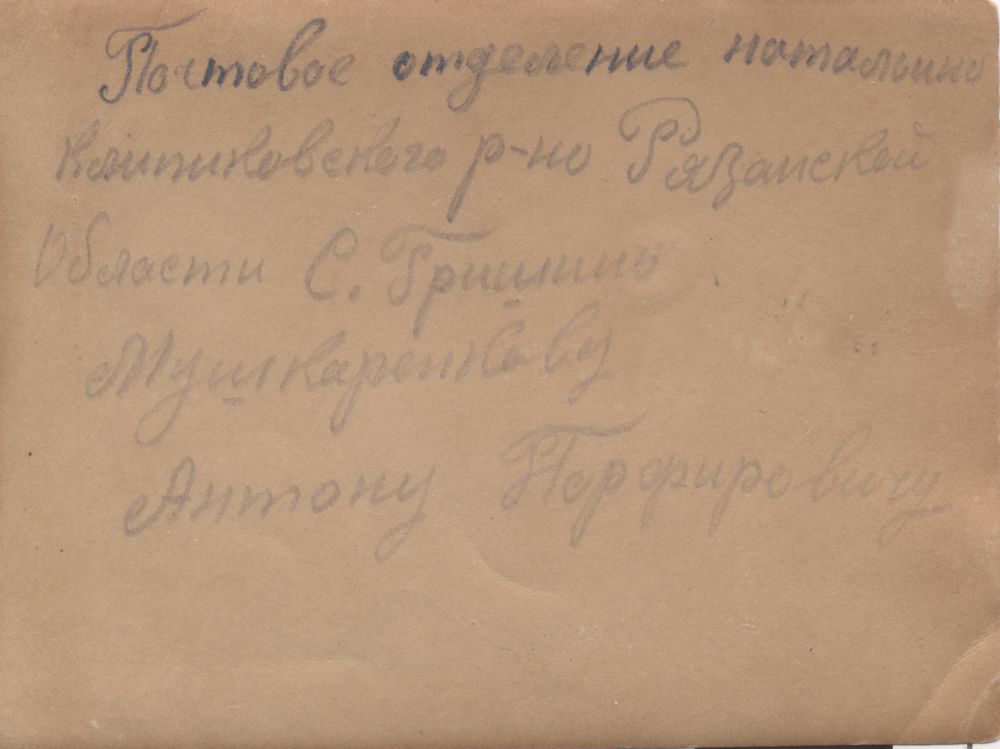 Почтовое отделение наталоино
Клепиковского р-но Рязанской
Области С. Гришино
Мушкаренкову
Антону Порфировичу